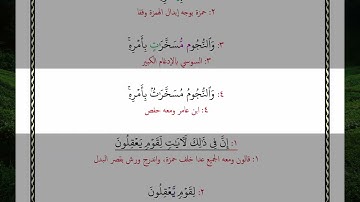 ٢: حمزة بوجه إبدال الهمزة وقفا
٣: وَالنُّجُوم مُّسَخَّرَٰتٍۭ بِأَمْرِهِۦٓ
٣: السوسي بالإدغام الكبير
٤: وَالنُّجُومُ مُسَخَّرَٰتٌۢ بِأَمْرِهِۦٓ
٤: ابن عامر ومعه حفص
١: إِنَّ فِى ذَٰلِكَ لَـَٔايَٰتٍ لِّقَوْمٍ يَعْقِلُونَ
١: قالون ومعه الجميع عدا خلف حمزة، واندرج ورش بقصر البدل
٢: لِقَوْمٍ يَّعْقِلُونَ